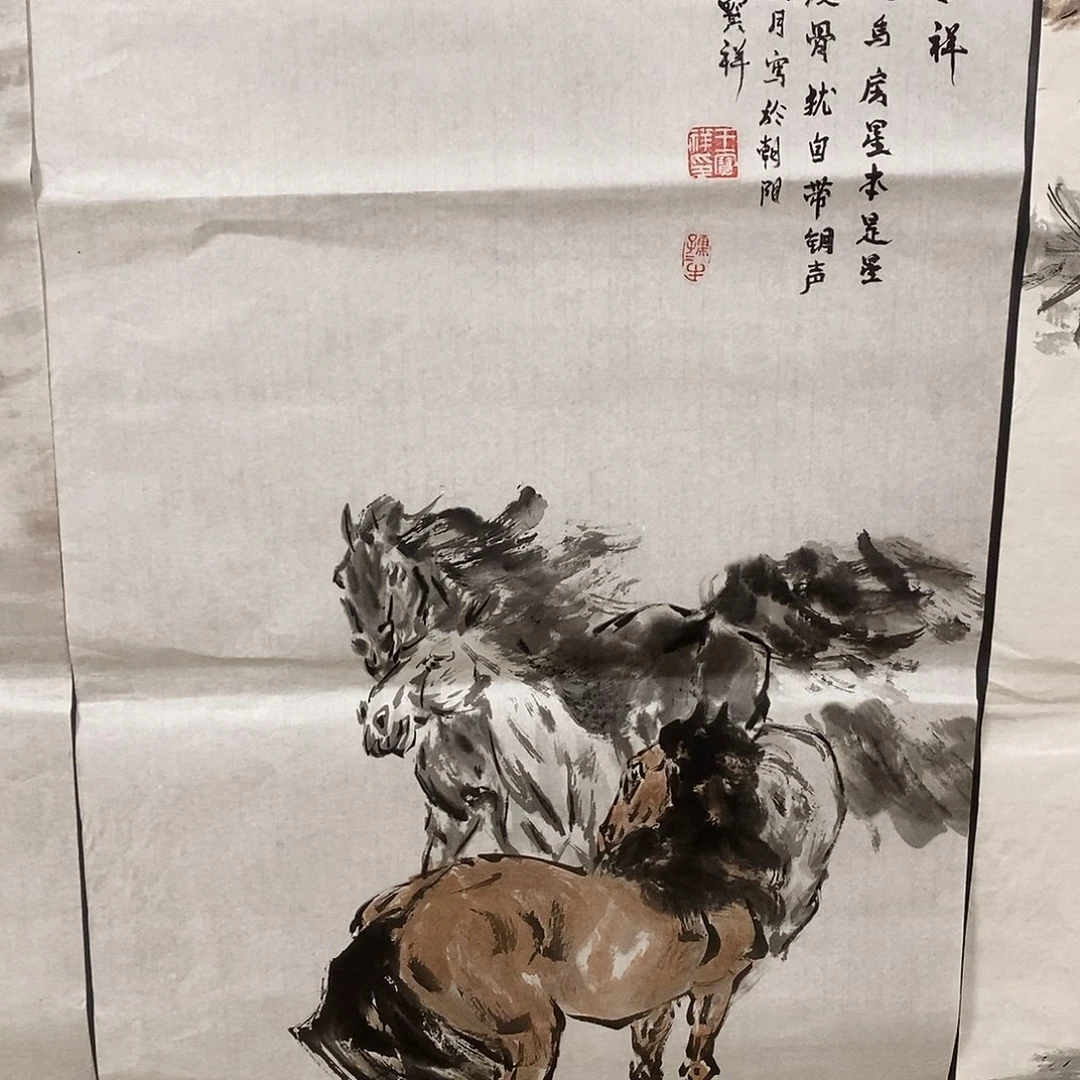 祥
馬房星本是星
骨犹自带铜声
月写於朝阳
祥
王寶祥印